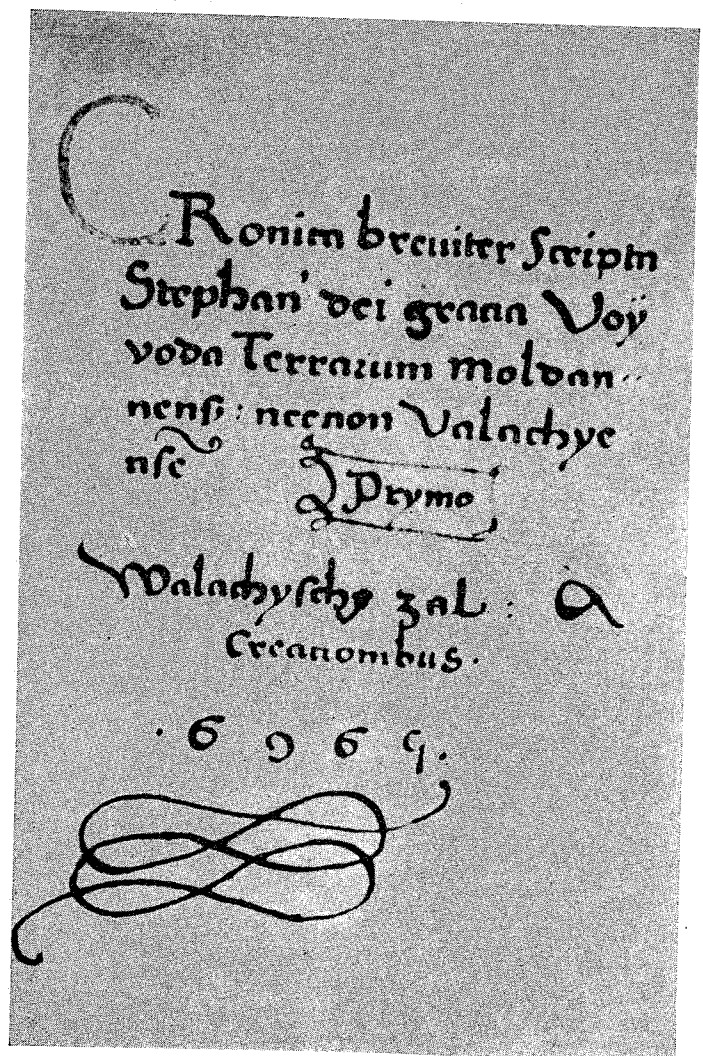 CRonica breuiter Scripta
Stephan' dei gracia Voÿ
voda Terrarum moldan
nens: necnon Valachye
nse
Prymo
Walachysche zal: A
Creationibus.
.6 9 6 5.